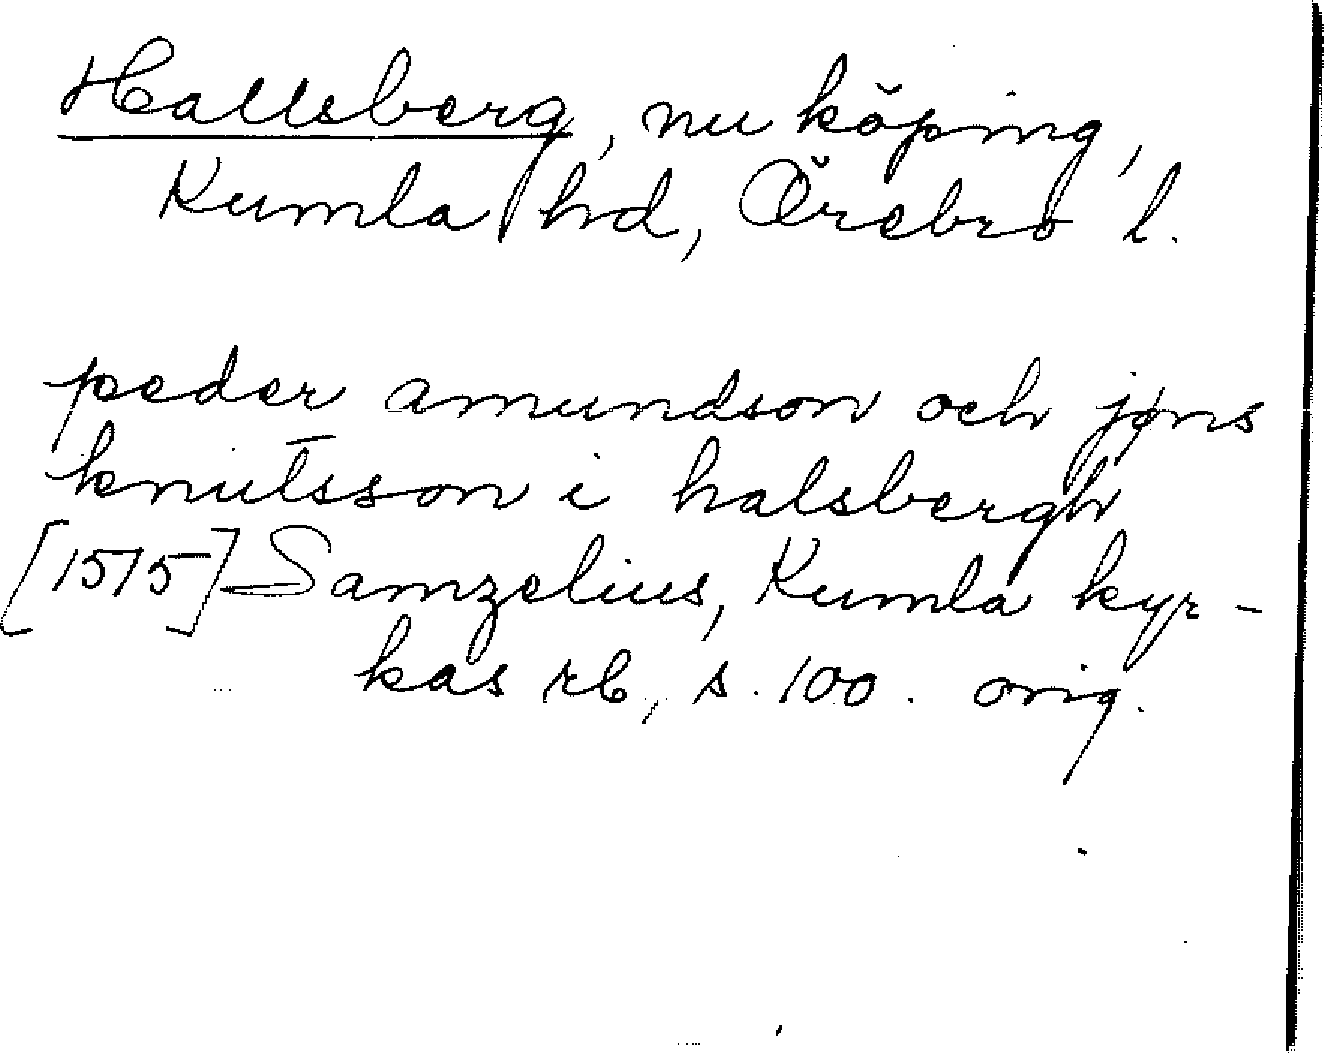 Hallsberg, nu köping,
Kumla hd, Örebro l.
peder amundson och jøns
knutsson i halsbergh
[1575] Samzelius, Kumla kyr-
kas rb, s. 100. orig.